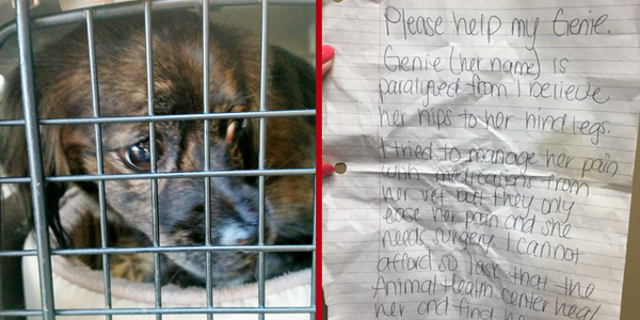 Please help my Genie.
Genie (her name) is
paralyzed from I believe
her hips to her hind legs.
I tried to manage her pain
with medications from
her vet but they only
ease her pain and she
needs surgery. I cannot
afford so I ask that the
Animal Health center heal
her and find